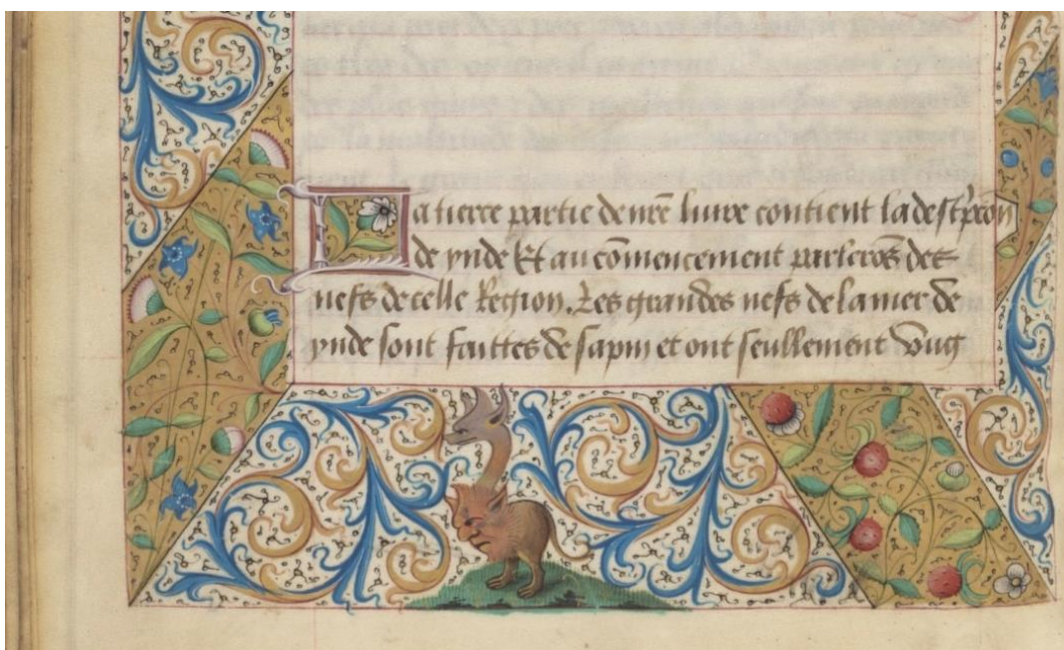 La tierce partie de nr̄e livre contient la descͬpcōn
de ynde Et au cōmencement parlerōs des
nefs de celle Region. Les grandes nefs de la mer de
ynde sont faittes de sapin et ont seullement vng